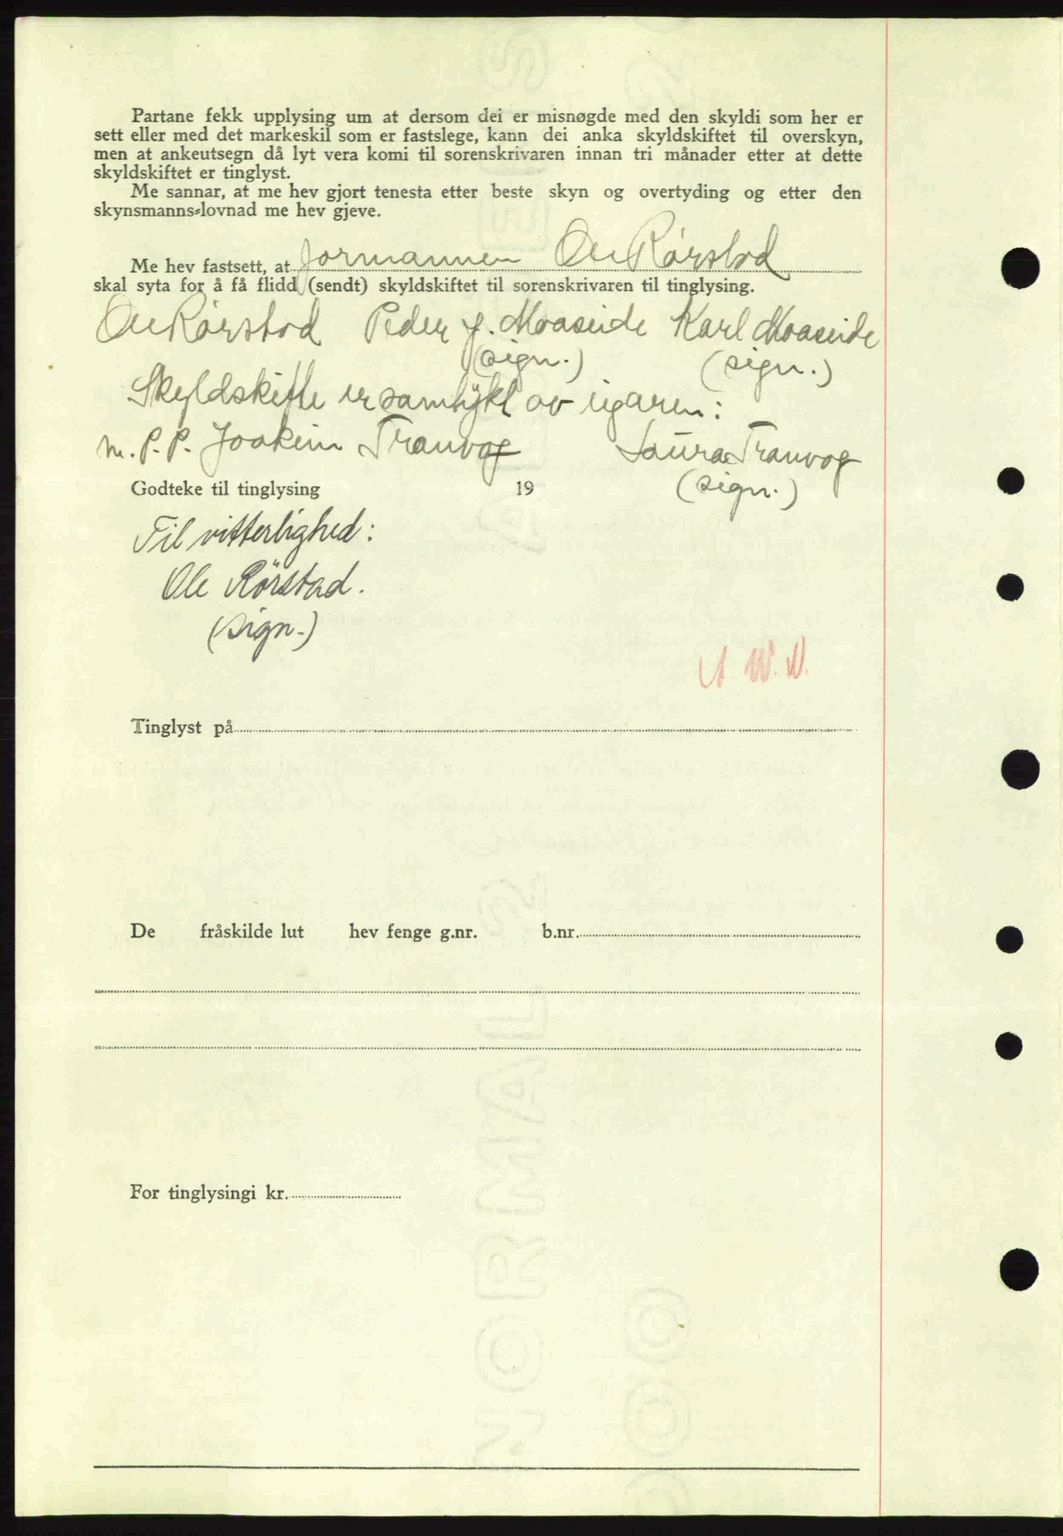 Partane fekk upplysing um at dersom dei er misnøgde med den skyldi som her er
sett eller med det markeskil som er fastslege, kann dei anka skyldskiftet til overskyn,
men at ankeutsegn då lyt vera komi til sorenskrivaren innan tri månader etter at dette
skyldskiftet er tinglyst.
Me sannar, at me hev gjort tenesta etter beste skyn og overtyding og etter den
skynsmanns-lovnad me hev gjeve.
Me hev fastsett, at formannen Ole Rörstad
skal syta for å få flidd (sendt) skyldskiftet til sorenskrivaren til tinglysing.
Ole Rörstad Peder J. Moaseide Karl Moaseide
(sign.) (sign.)
Skyldskifte er samtykt av eigaren:
m. P. P. Joakim Tranvog Laura Tranvog
Godteke til tinglysing 19 (sign.)
Til vitterlighed:
Ole Rörstad.
(sign.)
Tinglyst på
De fråskilde lut hev fenge g.nr. b.nr.
For tinglysingi kr.
NORMAL